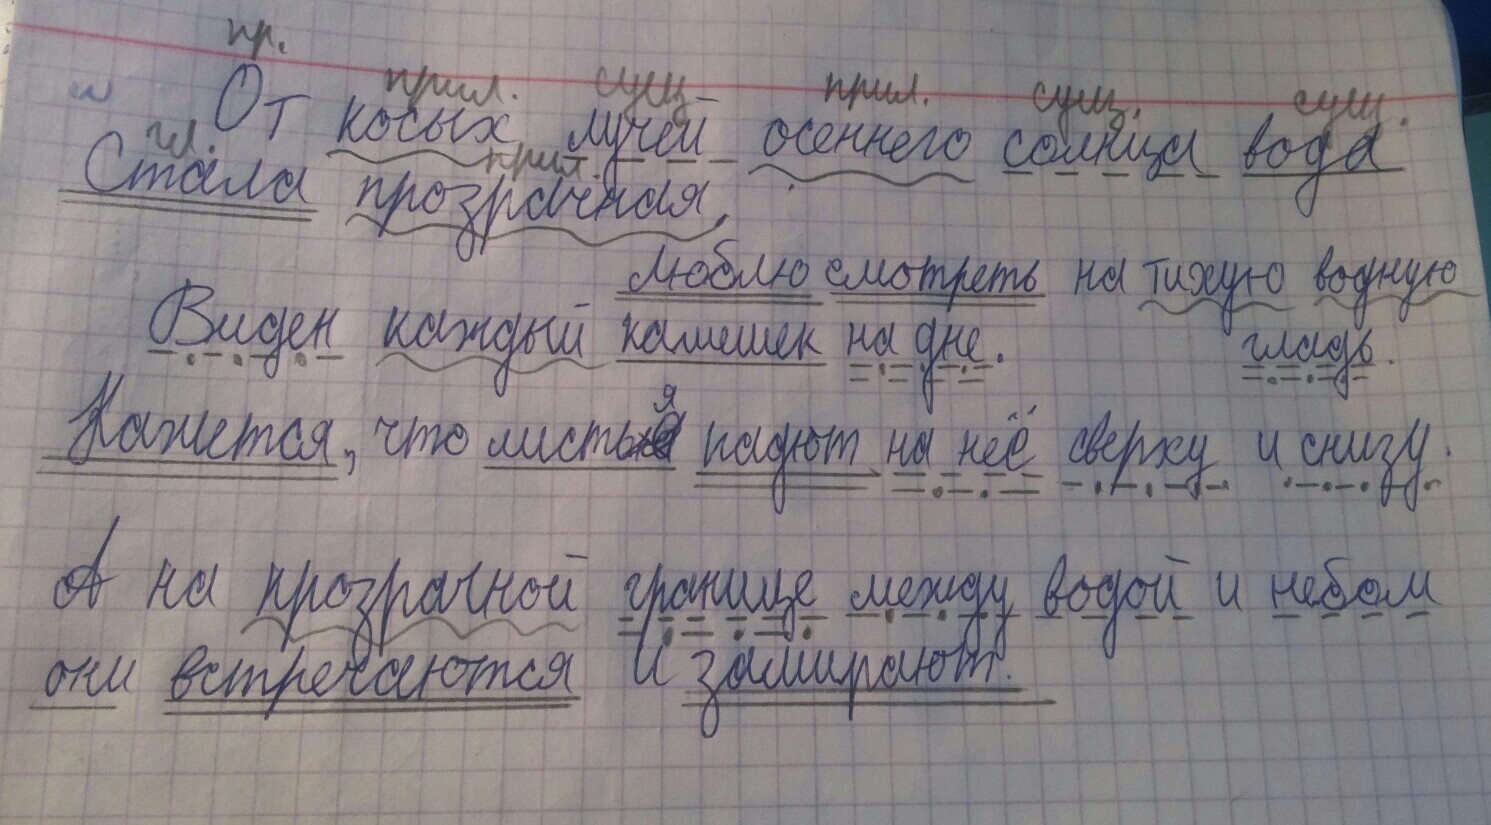 пр.
прил. сущ. прил. сущ. сущ.
От косых лучей осеннего солнца вода
гл. прил.
Стала прозрачная.
Люблю смотреть на тихую водную
Виден каждый камешек на дне. гладь.
я
Кажется, что листья падают на неё сверху и снизу.
А на прозрачной границе между водой и небом
они встречаются и замирают.